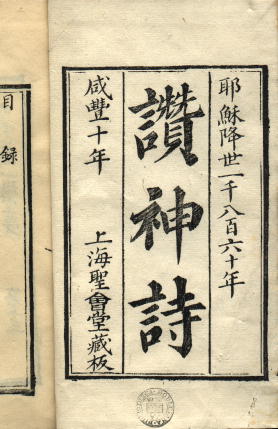 耶穌降世一千八百六十年
讚神詩
咸豐十年
上海聖會堂藏板
目錄